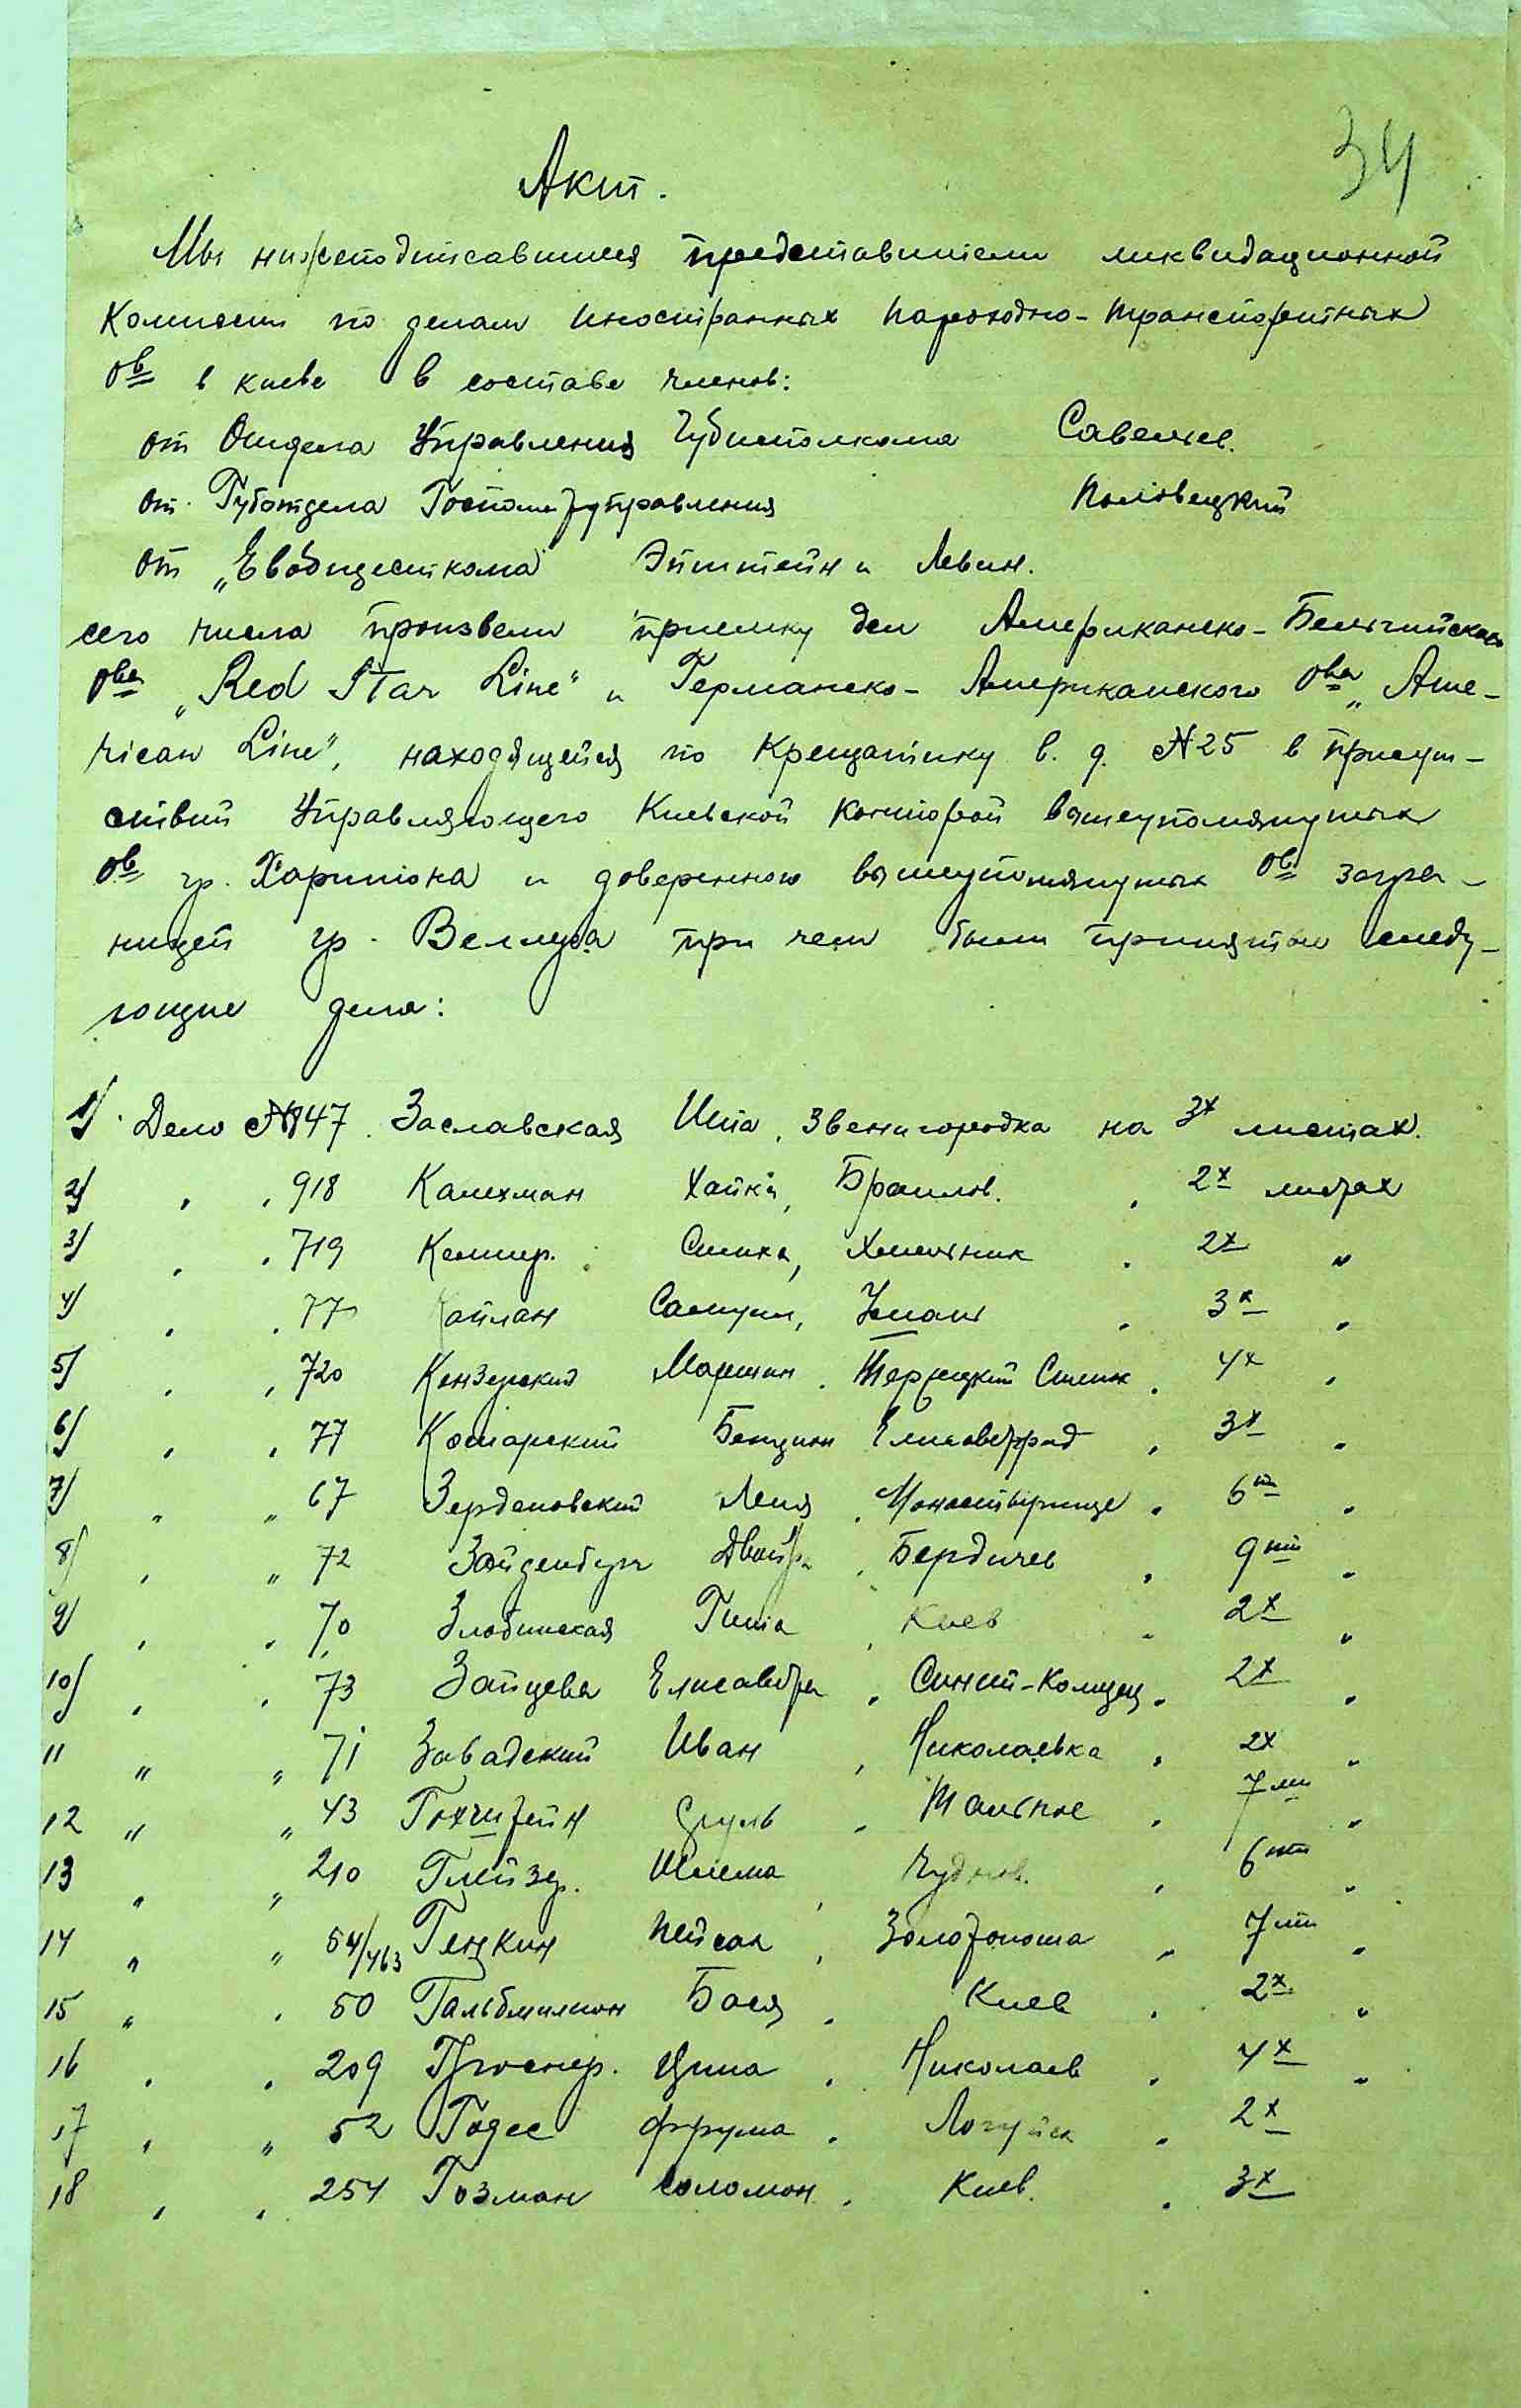 34
Акт.
Мы нижеподписавшиеся представители ликвидационной
Комиссии по делам Иностранных Пароходно-Транспортных
Ов в Киеве в составе членов:
от Отдела Управления Губисполкома Савельев.
от Губотдела Госполитуправления Половецкий
от „Евобщесткома" Эпштейн и Левин.
сего числа произвели приемку дел Американско-Бельгийского
Ова „Red Star Line" и Германско-Американского Ова „Ame-
rican Line", находящейся по Крещатику в д. №25 в присут-
ствии Управляющего Киевской Конторой вышеупомянутых
Ов гр. Харитона и доверенного вышеупомянутых Ов загра-
ницей гр. при чем были приняты следу-
ющие дела:
1) Дело № 47 Заславская Ита, Звенигородка на 3х листах.
2) " " 918 Калехман Хайка, Браилов. " 2х листах
3) " " 719 Келлер. Симха, Хмельник " 2х "
4) " " 77 Каплан Самуил, Умань " 3х "
5) " " 720 Мартин . " 4х "
6) " " 77 Комарский Бенцион Елисаветград " 3х "
7) " " 67 Лея, Монастырище " 6ти "
8) " " 72 Двойра, Бердичев " 9ти "
9) " " 70 Злобинская Гитя, Киев " 2х "
10) " " 73 Зайцева Елисавета, " 2х "
11 " " 71 Завадский Иван, Николаевка " 2х "
12 " " 43 Сруль, Тальное " 7ми "
13 " " 210 Глейзер. Шлема, Чуднов. " 6ти "
14 " " 54/463 Генкин Пейсах, Золотоноша " 7ми "
15 " " 50 Бася, Киев " 2х "
16 " " 209 Цина, Николаев " 4х "
17 " " 52 Годес Фрума, " 2х
18 " " 254 Гозман Соломон, Киев. " 3х